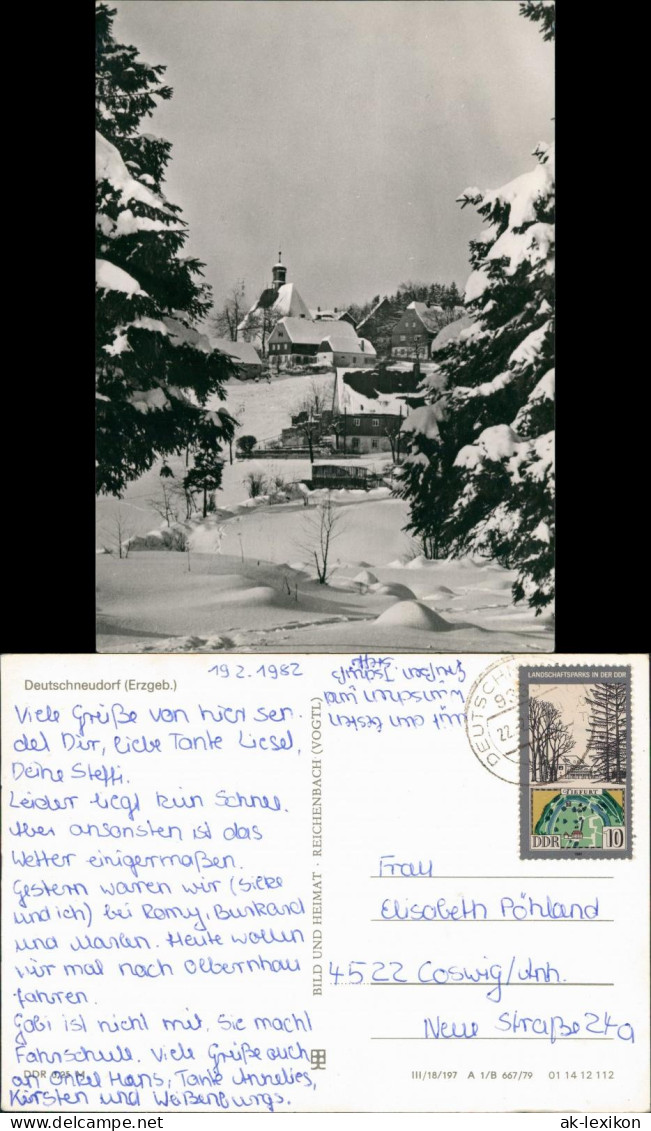 Deutschneudorf (Erzgeb.)
19.2.1982
Viele Grüße von hier sen-
det Dir, liebe Tante Liesel,
Deine Steffi.
Leider liegt kein Schnee.
Aber ansonsten ist das
Wetter einigermaßen.
Gestern waren wir (Silke
und ich) bei Romy, Burkard
und Maren. Heute wollen
wir mal nach Olbernhau
fahren.
Gabi ist nicht mit. Sie macht
Fahrschule. Viele Grüße auch
an Onkel Hans, Tante Annelies,
Kirsten und Weißenburgs.
mit den besten
Wünschen und
Grüßen Tschüß
Steffi
BILD UND HEIMAT · REICHENBACH (VOGTL)
DEUTSCH
93
22.
LANDSCHAFTSPARKS IN DER DDR
ERFURT
DDR 10
Frau
Elisabeth Pöhland
4522 Coswig/Anh.
Neue Straße 24a
DDR M
III/18/197 A 1/B 667/79 01 14 12 112
www.delcampe.net
ak-lexikon